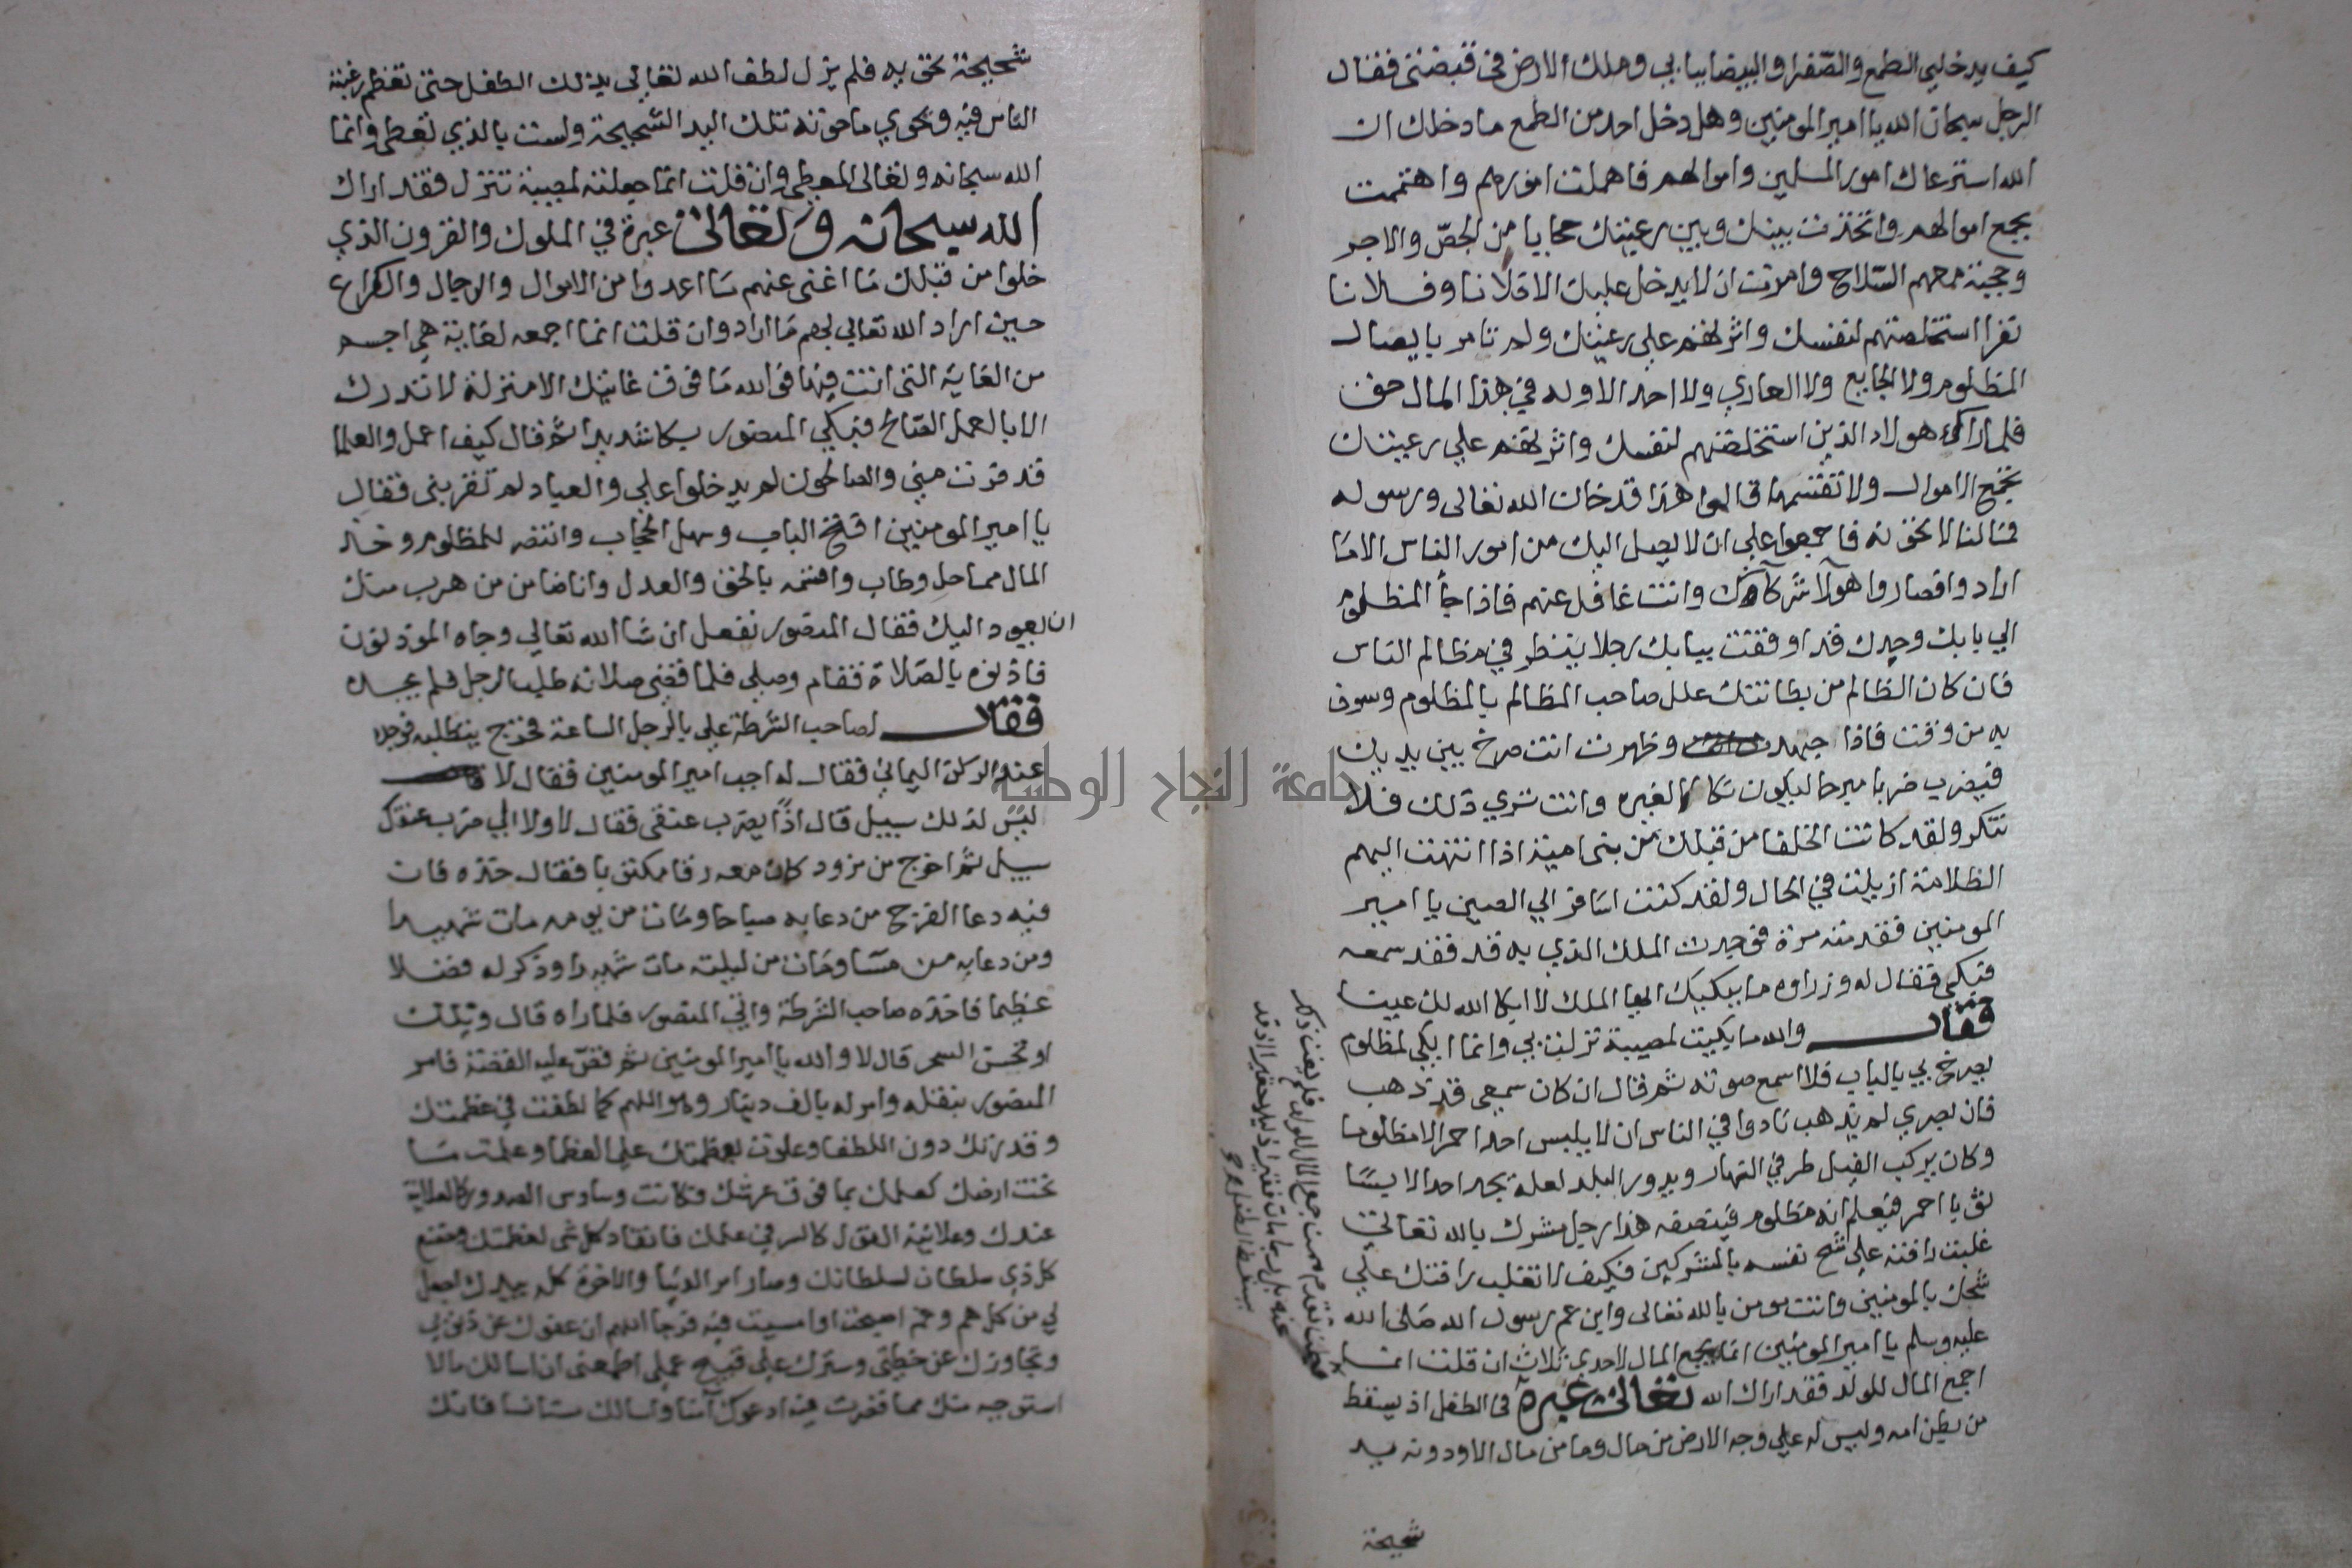 كيف يدخلني الطمع والصفرا والبيضا ببابي وملك الارض في قبضتي فقال
الرجل سبحان الله يا امير المومنين وهل دخل احد من الطمع ما دخلك ان
الله استرعاك امور المسلمين واموالهم فاهملت امورهم واهتممت
بجمع اموالهم واتخذت بينك وبين رعيتك حجابا من الجص والاجر
وحجبة معهم السلاح وامرت ان لا يدخل عليك الا فلانا وفلانا
نفرا استخلصتهم لنفسك واثرتهم علي رعيتك ولم تامر بايصال
المظلوم ولا الجايع ولا العاري ولا احد الا وله في هذا المال حق
فلما راك هولاء الذين استخلصتهم لنفسك واثرتهم علي رعيتك
تجمع الاموال ولا تقتسمها قالوا هذا قد خان الله تعالى ورسوله
فما لنا لا نخونه فاجمعوا علي ان لا يصل اليك من امور الناس الا ما
اراد وافصاروا هولا شركاوك وانت غافل عنهم فاذا جا المظلوم
الي بابك وجدك قد اوقفت ببابك رجلا ينظر في مظالم الناس
فان كان الظالم من بطانتك علل صاحب المظالم بالمظلوم وسوف
به من وقت فاذا جهد وظهرت انت صرخ بين يديك
فيضرب ضربا مبرحا ليكون نكالا لغيره وانت تري ذلك فلا
تنكر ولقد كانت الخلفا من قبلك من بني امية اذا انتهت اليهم
الظلامة ازيلت في الحال ولقد كنت اسافر الي الصين يا امير
المومنين فقدمته مرة فوجدت الملك الذي به قد فقد سمعه
فبكى فقال له وزراوه ما يبكيك ايها الملك لا ابكا الله لك عينا
فقال والله ما بكيت لمصيبة نزلت بي وانما ابكي لمظلوم
يصرخ بي بالباب فلا اسمع صوته ثم قال ان كان سمعي قد ذهب
فان بصري لم يذهب نادوا في الناس ان لا يلبس احدا احمر الا مظلوما
وكان يركب الفيل طرفي النهار ويدور البلد لعله يجد احدا لابسا
ثوبا احمر فيعلم انه مظلوم فينصفه هذا رجل مشرك بالله تعالى
غلبت رافته علي شح نفسه بالمشركين فكيف لا تغلب رافتك علي
شحك بالمومنين وانت مومن بالله تعالى وابن عم رسول الله صلى الله
عليه وسلم يا امير المومنين انما يجمع المال لاحدي ثلاث ان قلت انما
اجمع المال للولد فقد اراك الله تعالى عبرة في الطفل اذ يسقط
من بطن امه وليس له علي وجه الارض من مال وما من مال الا ودونه يد
شحيحة
شحيحة تحويه فلم يزل لطف الله تعالى بذلك الطفل حتى تعظم رغبة
الناس فيه ويحوي ما حوته تلك اليد الشحيحة ولست بالذي تعطي وانما
الله سبحانه وتعالى المعطي وان قلت انما جعلته لمصيبة تنزل فقد اراك
الله سبحانه وتعالى عبرة في الملوك والقرون الذي
خلوا من قبلك ما اغنى عنهم ما اعدوا من الاموال والرجال والكراع
حين اراد الله تعالي بهم ما اراد وان قلت انما اجمعه لغاية هي اجسم
من الغاية التي انت فيها فو الله ما فوق غايتك الا منزلة لا تدرك
الا بالعمل الصالح فبكي المنصور بكا شديدا ثم قال كيف اعمل والعلما
قد فرت مني والصالحون لم يدخلوا علي والعباد لم تقربني فقال
يا امير المومنين افتح الباب وسهل الحجاب وانتصر للمظلوم وخذ
المال مما حل وطاب واقسمه بالحق والعدل وانا ضامن من هرب منك
ان يعود اليك فقال المنصور نفعل ان شا الله تعالي وجاه الموذنون
فاذنوه بالصلاة فقام وصلي فلما قضي صلاته طلب الرجل فلم يجده
فقال لصاحب الشرطة علي بالرجل الساعة فخرج يتطلبه فوجده
عند الركن اليماني فقال له اجب امير المومنين فقال لا
ليس لذلك سبيل قال اذا يضرب عنقي فقال لا ولا الي ضرب عنقك
سبيل ثم اخرج من مزود كان معه رقا مكتوبا فقال خذه فان
فيه دعا الفرج من دعا به صباحا ومات من يومه مات شهيدا
ومن دعا به من مسا ومات من ليلته مات شهيدا وذكر له فضلا
عظيما فاخذه صاحب الشرطة واتي المنصور فلما راه قال ويلك
او تحسن السحر قال لا والله يا امير المومنين ثم قص عليه القصة فامر
المنصور بنقله وامر له بالف دينار وهو اللهم كما لطفت في عظمتك
وقدرتك دون اللطفا وعلوت بعظمتك علي العظما وعلمت ما
تحت ارضك كعلمك بما فوق عرشك وكانت وساوس الصدور كالعلانية
عندك وعلانية القول كالسر في علمك فانقاد كل شي لعظمتك وخضع
كل ذي سلطان لسلطانك وصار امر الدنيا والاخرة كله بيدك اجعل
لي من كل هم وغم اصبحت او امسيت فيه فرجا اللهم ان عفوك عن ذنوبي
وتجاوزك عن خطيتي وسترك علي قبيح عملي اطمعني ان اسالك ما لا
استوجبه منك مما قصرت فيه ادعوك آمنا واسالك مستانسا فانك
جامعة النجاح الوطنية